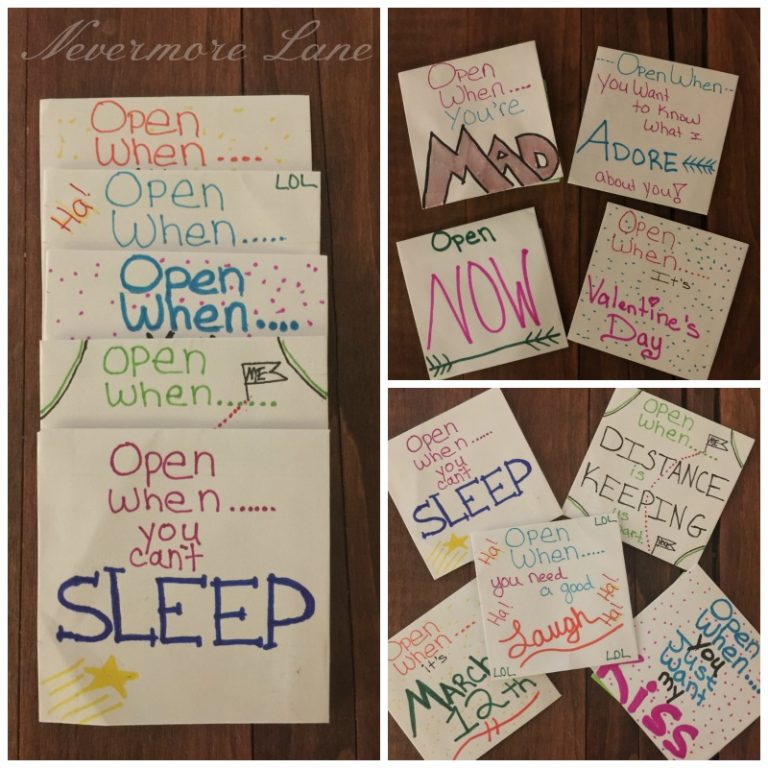 Nevermore Lane
Open
When.....
Ha!
Open
LOL
When.....
Open
When....
Open
When......
ME
Open
when......
you
can't
SLEEP
Open
When.....
You're
MAD
Open When
You Want
to know
What I
ADORE
about you!
Open
NOW
Open
When......
It's
Valentine's
Day
Open
when......
you
can't
SLEEP
Open
When......
ME
DISTANCE
is
KEEPING
us
LOL
Ha!
Open
When.....
you need
a good
Ha!
Ha!
Ha!
Laugh
LOL
LOL
Open
When....
it's
MARCH
12th
Open
When....
you
Just
Want
my
Kiss